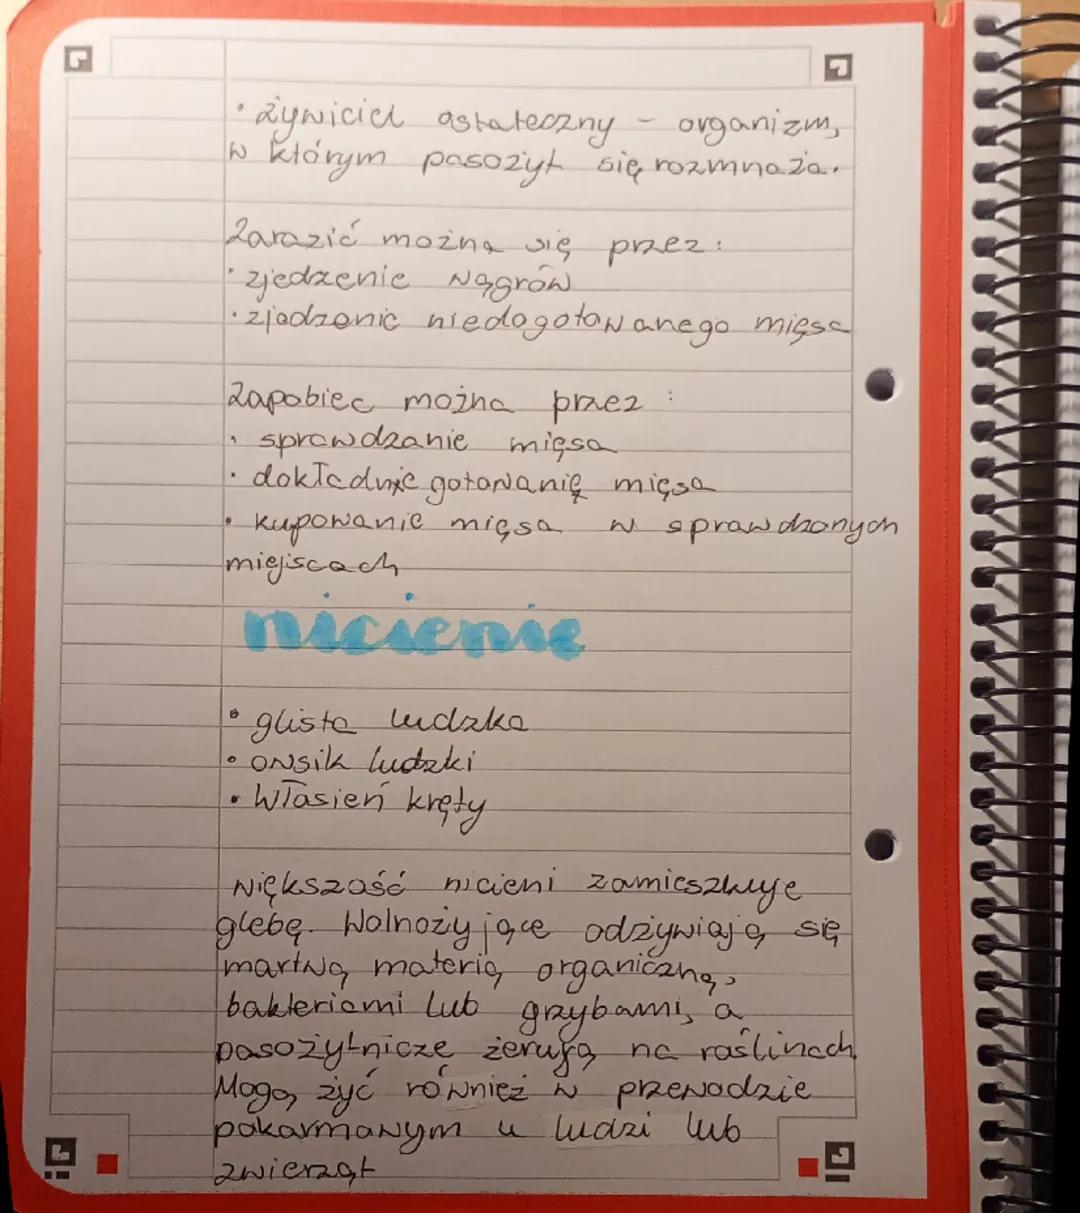 • żywiciel ostateczny - organizm,
w którym pasożyt się rozmnaża.
Zarazić można się przez:
• zjedzenie wągrów
• zjedzenie niedogotowanego mięsa
Zapobiec można przez:
• sprawdzanie mięsa
• dokładnie gotowanię mięsa
• kupowanie mięsa w sprawdzonych
miejscach
nicienie
• glista ludzka
• owsik ludzki
• włosień kręty
większość nicieni zamieszkuje
glebę. Wolnożyjące odżywiają się
martwą materią organiczną,
bakteriami lub grzybami, a
pasożytnicze żerują na roślinach.
Mogą żyć również w przewodzie
pokarmowym u ludzi lub
zwierząt